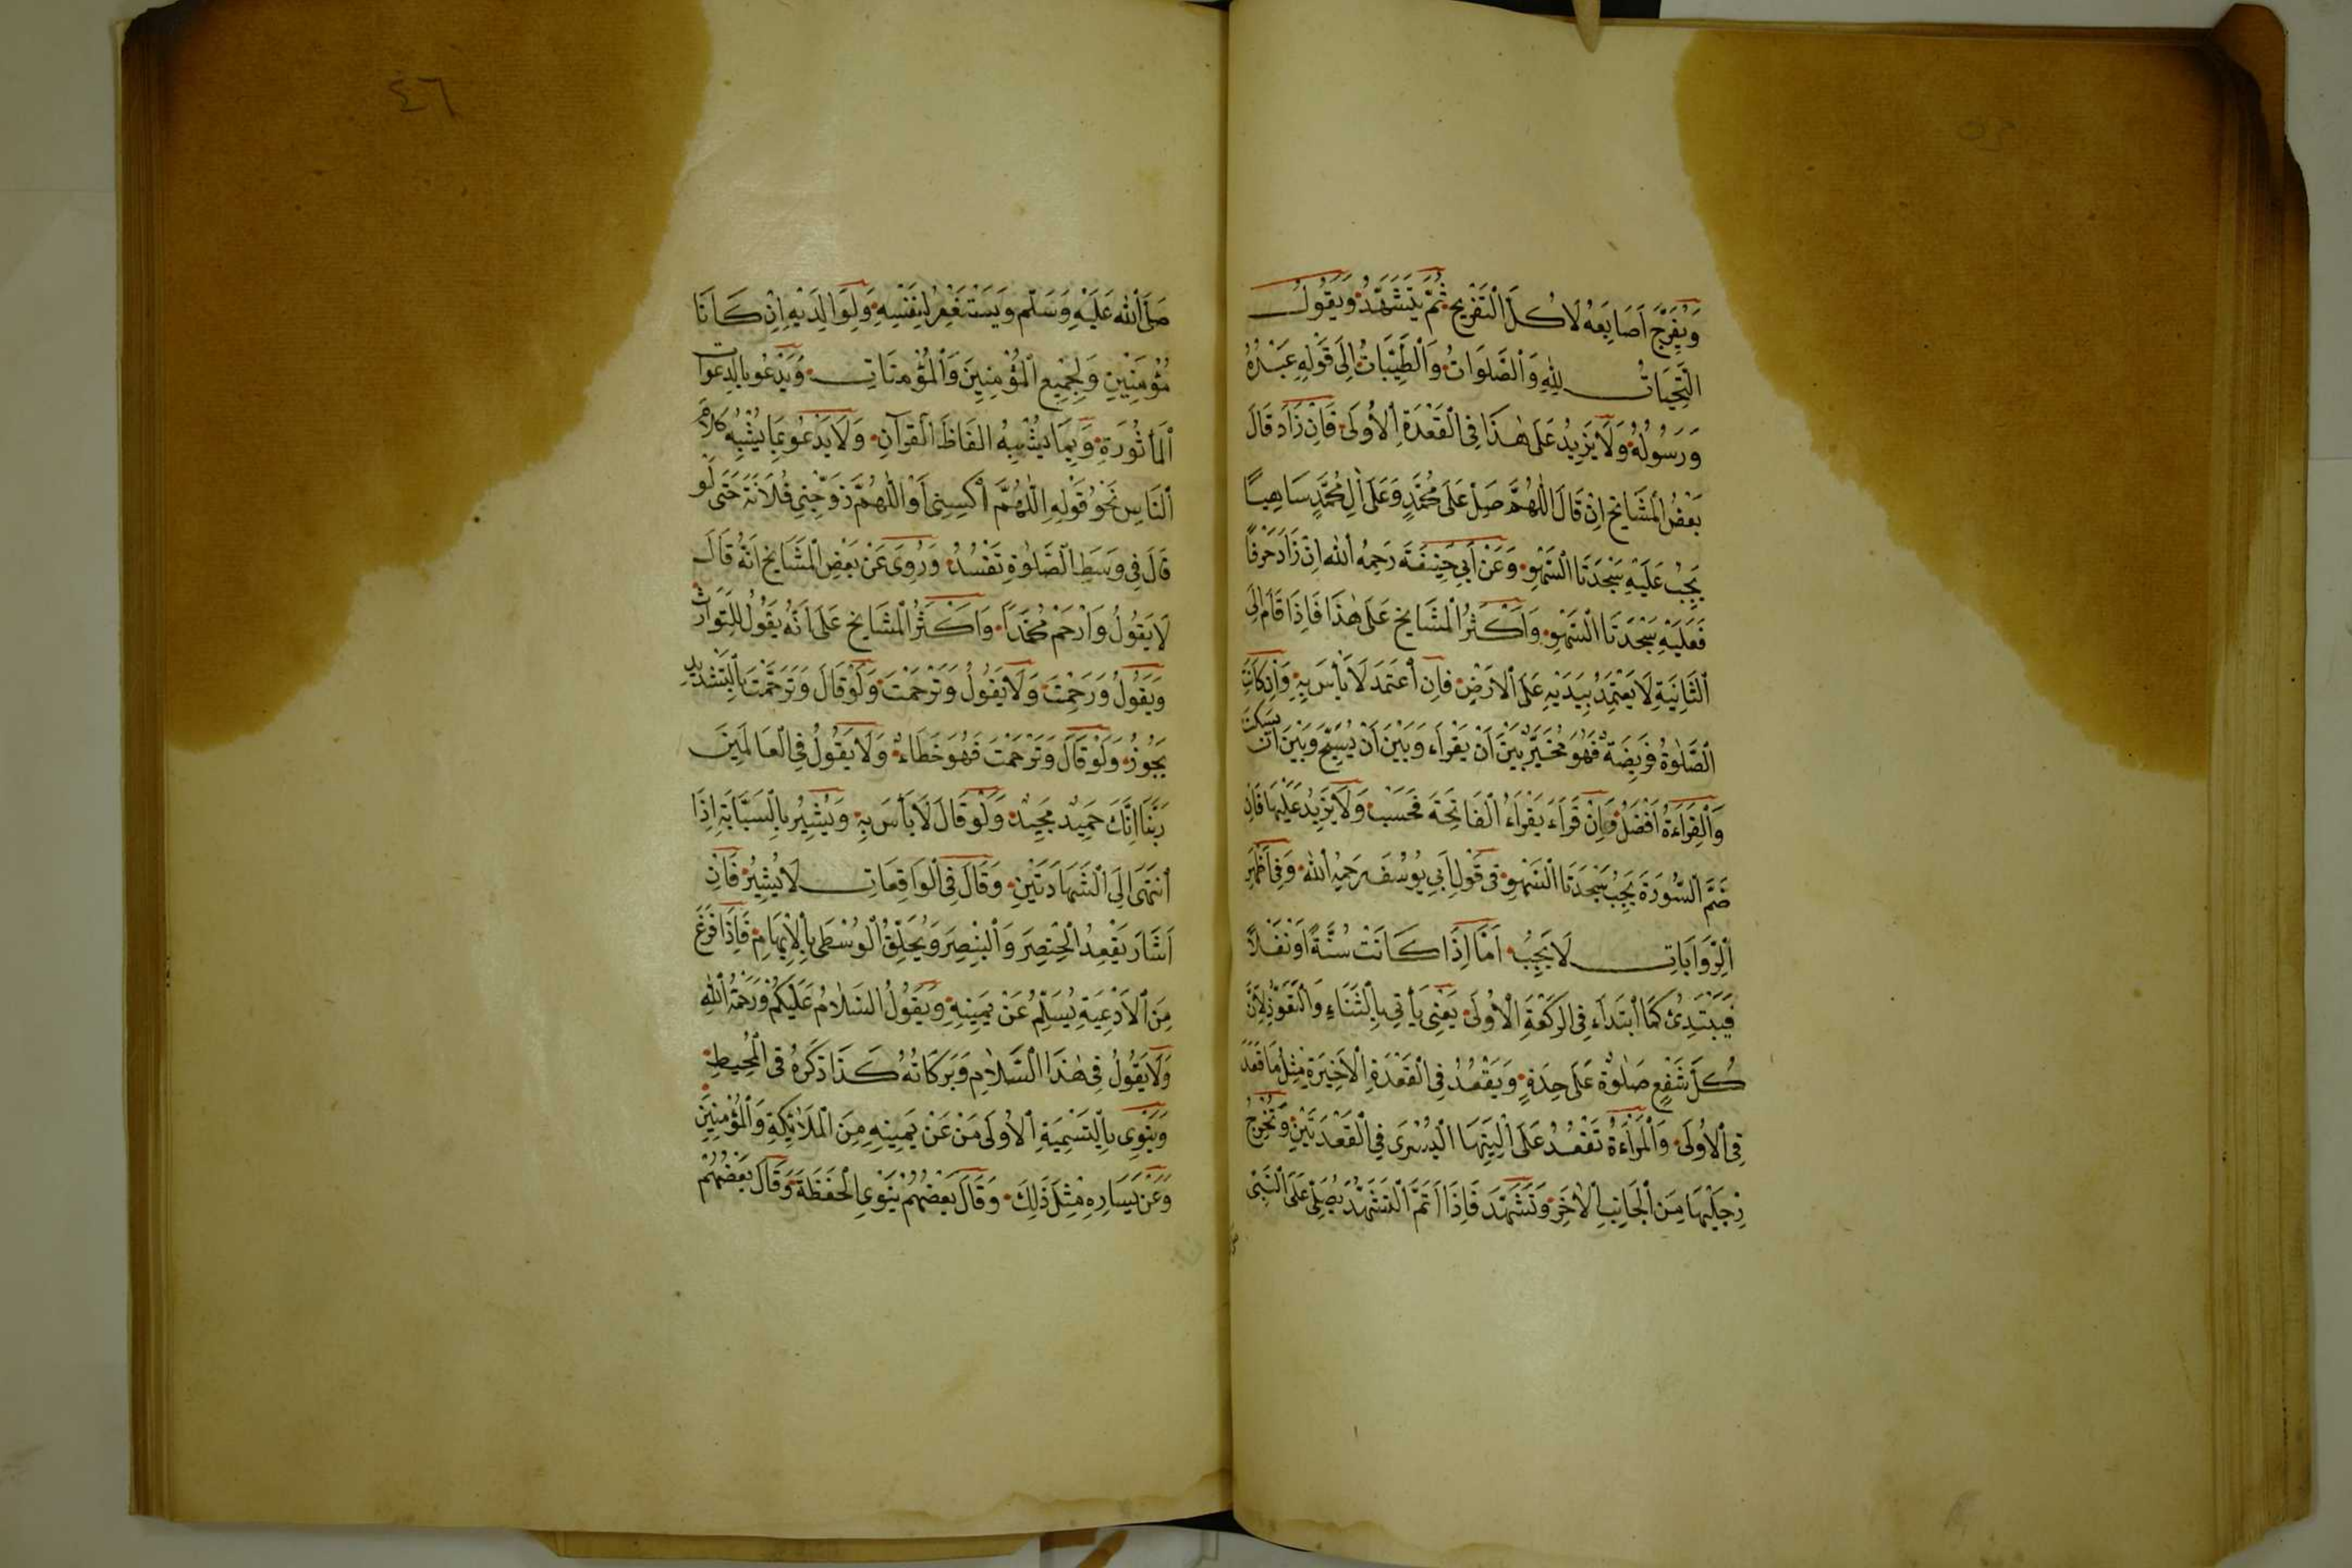 وَيُفَرِّجَ اَصَابِعَهُ لَا كُلَّ التَّفْرِيجِ ثُمَّ يَتَشَهَّدُ وَيَقُولُ
اَلتَّحِيَّاتُ لِلّٰهِ وَالصَّلَوَاتُ وَالطَّيِّبَاتُ اِلَى قَوْلِهِ عَبْدُهُ
وَرَسُولُهُ وَلَا يَزِيدُ عَلَى هٰذَا فِى الْقَعْدَةِ الْاُولَى فَاِنْ زَادَ قَالَ
بَعْضُ الْمَشَايِخِ اِنْ قَالَ اللّٰهُمَّ صَلِّ عَلَى مُحَمَّدٍ وَعَلَى اٰلِ مُحَمَّدٍ سَاهِيًا
يَجِبُ عَلَيْهِ سَجْدَتَا السَّهْوِ وَعَنْ اَبِى حَنِيفَةَ رَحِمَهُ اللّٰه اِنْ زَادَ حَرْفًا
فَعَلَيْهِ سَجْدَتَا السَّهْوِ وَاَكْثَرُ الْمَشَايِخِ عَلَى هٰذَا فَاِذَا قَامَ اِلَى
الثَّانِيَةِ لَا يَعْتَمِدُ بِيَدَيْهِ عَلَى الْاَرْضِ فَاِنِ اعْتَمَدَ لَا بَأْسَ بِهِ وَاِنْ كَانَتِ
الصَّلٰوةُ فَرِيضَةً فَهُوَ مُخَيَّرٌ بَيْنَ اَنْ يَقْرَاَ وَبَيْنَ اَنْ يُسَبِّحَ وَبَيْنَ اَنْ يَسْكُتَ
وَالْقِرَاءَةُ اَفْضَلُ وَاِنْ قَرَاَءَ يَقْرَاَءُ الْفَاتِحَةَ فَحَسْبُ وَلَا يَزِيدُ عَلَيْهَا فَاِنْ
ضَمَّ السُّورَةَ يَجِبُ سَجْدَتَا السَّهْوِ فِى قَوْلِ اَبِى يُوسُفَ رَحِمَهُ اللّٰه وَفِى اَظْهَرِ
الرِّوَايَاتِ لَا يَجِبُ اَمَّا اِذَا كَانَتْ سُنَّةً اَوْ نَفْلًا
فَيَبْتَدِئُ كَمَا ابْتَدَاَءَ فِى الرَّكْعَةِ الْاُولَى يَعْنِى يَأْتِى بِالثَّنَاءِ وَالتَّعَوُّذِ لِاَنَّ
كُلَّ شَفْعٍ صَلٰوةٌ عَلَى حِدَةٍ وَيَقْعُدُ فِى الْقَعْدَةِ الْاَخِيرَةِ مِثْلَ مَا قَعَدَ
فِى الْاُولَى وَالْمَرْاَءَةُ تَقْعُدُ عَلَى اَلْيَتِهَا الْيُسْرَى فِى الْقَعْدَتَيْنِ وَتُخْرِجُ
رِجْلَيْهَا مِنَ الْجَانِبِ الْاٰخَرِ وَتَشَهَّدَ فَاِذَا اَتَمَّ التَّشَهُّدَ يُصَلِّى عَلَى النَّبِىِّ
٤٦
صَلَّى اللّٰه عَلَيْهِ وَسَلَّم وَيَسْتَغْفِرُ لِنَفْسِهِ وَلِوَالِدَيْهِ اِنْ كَانَا
مُؤْمِنَيْنِ وَلِجَمِيعِ الْمُؤْمِنِينَ وَالْمُؤْمِنَاتِ وَيَدْعُو بِالدَّعَوَاتِ
الْمَأْثُورَةِ وَبِمَا يُشْبِهُ الْفَاظَ الْقُرْآنِ وَلَا يَدْعُو بِمَا يُشْبِهُ كَلَامَ
النَّاسِ نَحْوُ قَوْلِهِ اللّٰهُمَّ اكْسِنِى اَوْ اللّٰهُمَّ زَوِّجْنِى فُلَانَةَ حَتَّى لَوْ
قَالَ فِى وَسَطِ الصَّلٰوةِ تَفْسُدُ وَرُوِىَ عَنْ بَعْضِ الْمَشَايِخِ اَنَّهُ قَالَ
لَا يَقُولُ وَارْحَمْ مُحَمَّدًا وَاَكْثَرُ الْمَشَايِخِ عَلَى اَنَّهُ يَقُولُ لِلتَّوَارُثِ
وَيَقُولُ وَرَحِمْتَ وَلَا يَقُولُ وَتَرْحَمْتَ وَلَوْ قَالَ وَتَرَحَّمْتَ بِالتَّشْدِيدِ
يَجُوزُ وَلَوْ قَالَ وَتَرْحَمْتَ فَهُوَ خَطَاءٌ وَلَا يَقُولُ فِى الْعَالَمِينَ
رَبَّنَا اِنَّكَ حَمِيدٌ مَجِيدٌ وَلَوْ قَالَ لَا بَأْسَ بِهِ وَيُشِيرُ بِالسَّبَّابَةِ اِذَا
انْتَهَى اِلَى الشَّهَادَتَيْنِ وَقَالَ فِى الْوَاقِعَاتِ لَا يُشِيرُ فَاِنْ
اَشَارَ يَعْقِدُ الْخِنْصِرَ وَالْبِنْصِرَ وَيُحَلِّقُ الْوُسْطَى بِالْاِبْهَامِ فَاِذَا فَرَغَ
مِنَ الْاَدْعِيَةِ يُسَلِّمُ عَنْ يَمِينِهِ وَيَقُولُ السَّلَامُ عَلَيْكُمْ وَرَحْمَةُ اللّٰهِ
وَلَا يَقُولُ فِى هٰذَا السَّلَامِ وَبَرَكَاتُهُ كَذَا ذَكَرَهُ فِى الْمُحِيطِ
وَيَنْوِى بِالتَّسْمِيَةِ الْاُولَى مَنْ عَنْ يَمِينِهِ مِنَ الْمَلَائِكَةِ وَالْمُؤْمِنِينَ
وَعَنْ يَسَارِهِ مِثْلَ ذَلِكَ وَقَالَ بَعْضُهُمْ يَنْوِى الْحَفَظَةَ وَقَالَ بَعْضُهُمْ